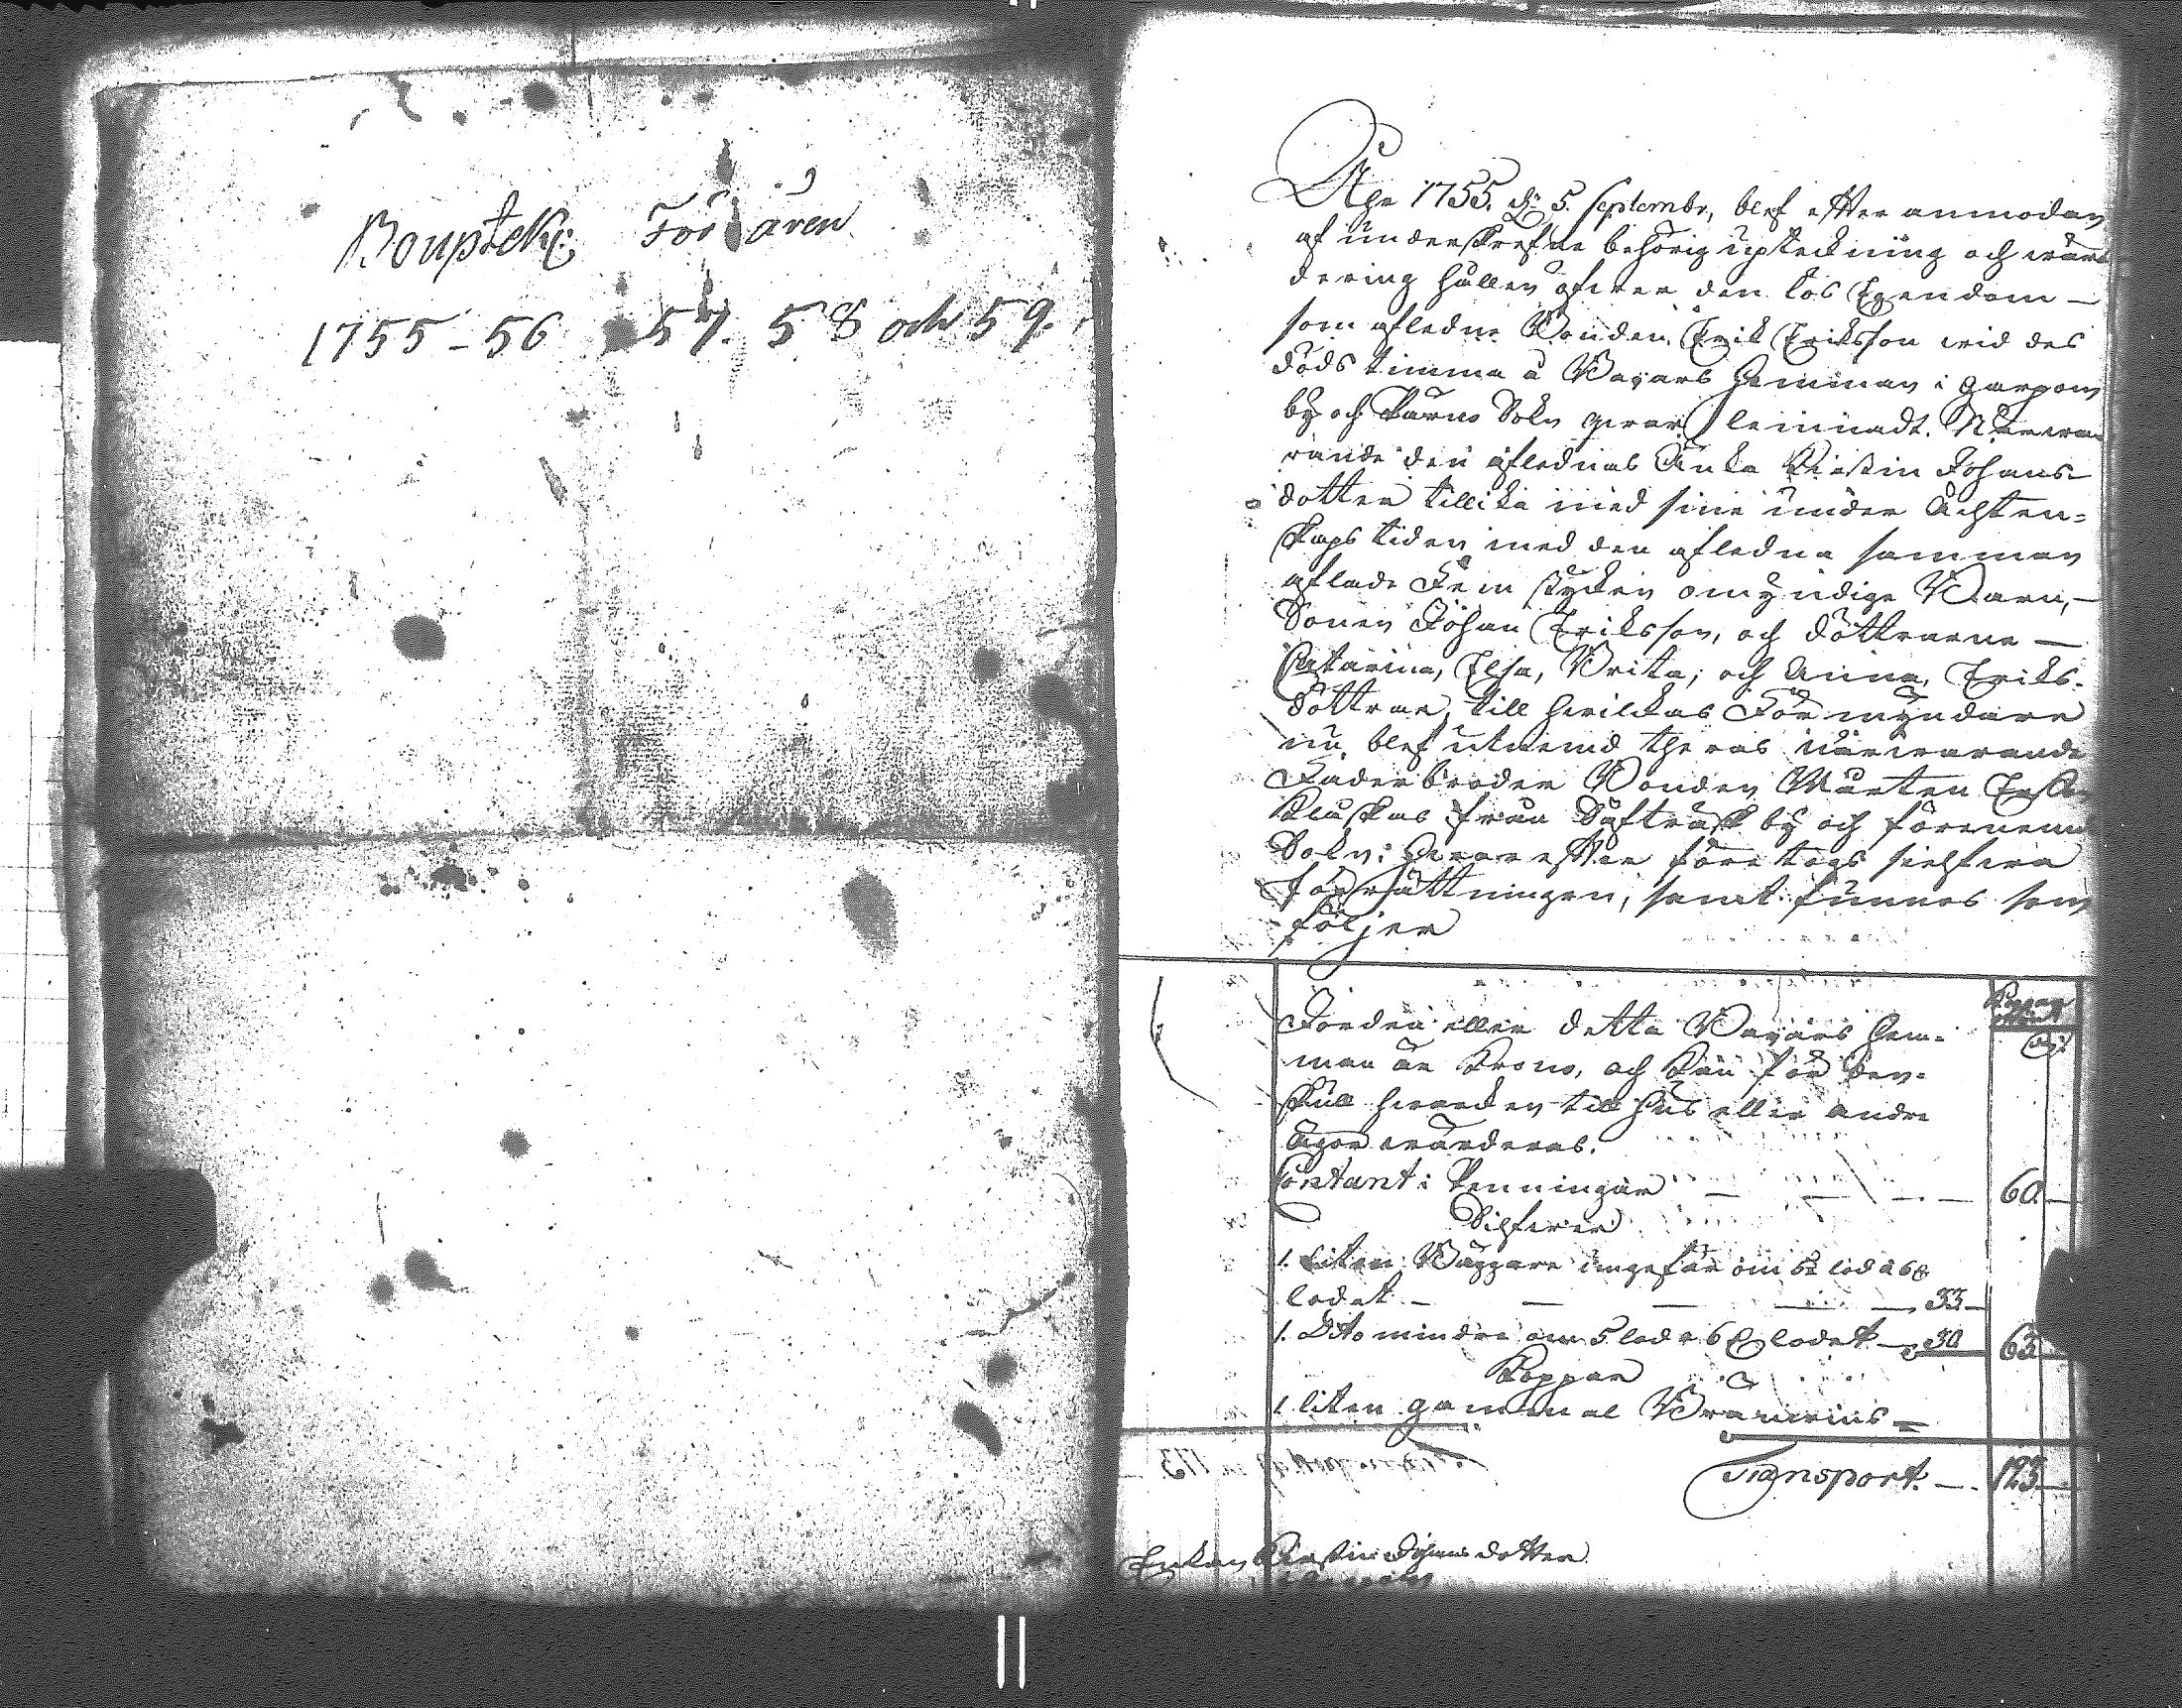 Bouptekn: För åren
1755-56 57. 58 och 59.
Åhr 1755. d: 5. Septembr, blef efter anmodan
af underskrefne behörig upteckning och wär-
dering hållen öfwer den lös Egendom —
som afledne Bonden Erik Eriksson wid des
döds timma å Bagars Hemman i Garpom
by och Pärno Sokn qwar lemnadt. Närwa-
rande den aflednas Änka Kirstin Johans-
dotter tillika med sine under Ächten-
skaps tiden med den afledna samman
aflade Fem stycken omyndige Barn, —
Sonen Johan Eriksson, och döttrarne —
Catarina, Elsa, Brita, och Anna, Eriks-
döttrar, till hwilckas Förmyndare
nu blef utnemd theras närwarande
Faderbroder Bonden Mårten
från by och förenemd
Sokn: Hwarefter företogs sielfwa
förrättningen, samt funnes som
följer
Jorden eller detta Bagars Hem-
man är Krono, och kan för den-
skull hwarcken till Hus eller andre
Ägor wärderas.
Contant: Penningar — — — 60 —
Silfwer
1. liten Bäggare ungefär om 5½ lod à 6
lodet — — — — 33 —
1. Dito mindre om 5 lod à 6 lodet — 30 63
Koppar
1 liten gammal Bränwins =
Transport. — 123 —
Enkan Kirstin Johansdotter